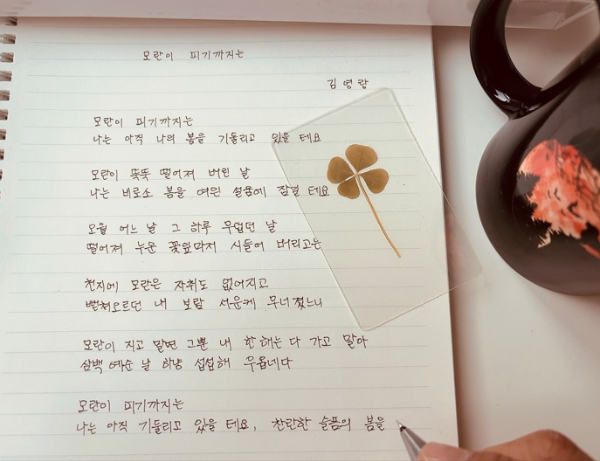 모란이 피기까지는
김영랑
모란이 피기까지는
나는 아직 나의 봄을 기둘리고 있을 테요
모란이 뚝뚝 떨어져 버린 날
나는 비로소 봄을 여읜 설움에 잠길 테요
오월 어느 날 그 하루 무덥던 날
떨어져 누운 꽃잎마저 시들어 버리고는
천지에 모란은 자취도 없어지고
뻗쳐오르던 내 보람 서운케 무너졌느니
모란이 지고 말면 그뿐 내 한 해는 다 가고 말아
삼백 예순 날 하냥 섭섭해 우옵네다
모란이 피기까지는
나는 아직 기둘리고 있을 테요, 찬란한 슬픔의 봄을